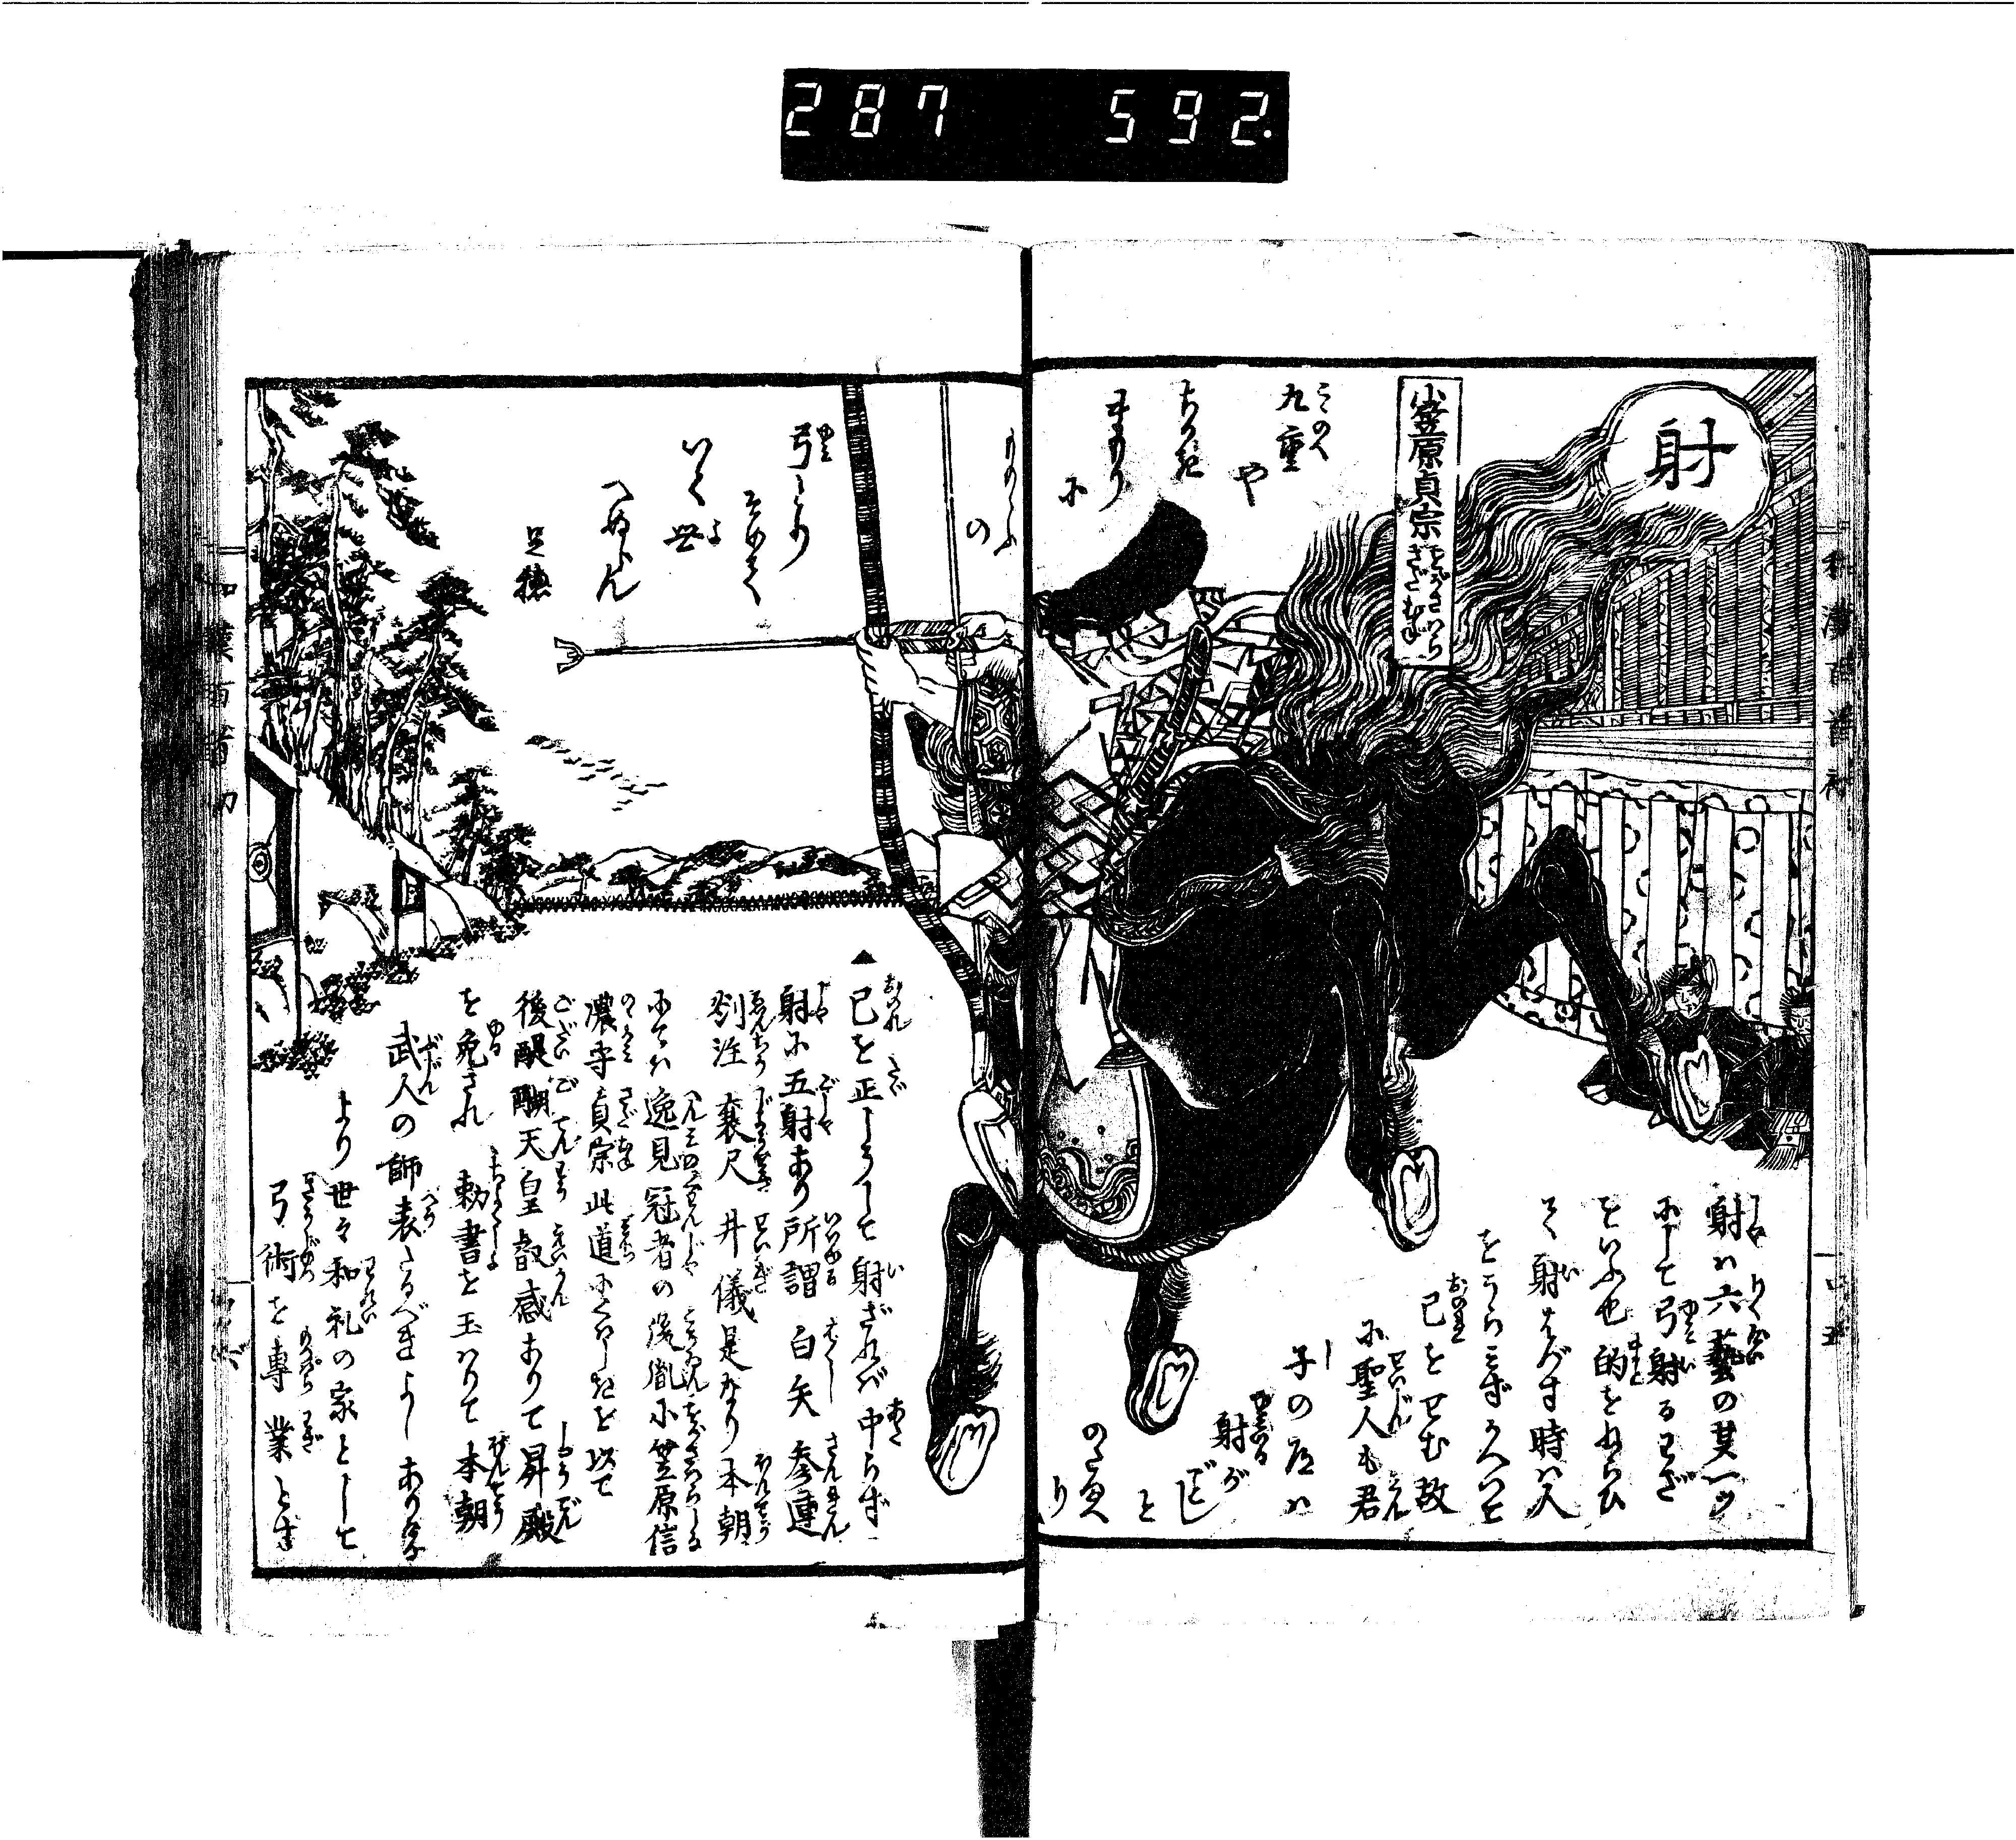 287 592.
射
小笠原貞宗
をがさはら
さだむね
九重
や
ちかき
まもり
に
ものゝふ
の
弓とり
そめて
いく世
へぬらん
射は六藝の其一ッ
にして弓射るわざ
をいふ也的をねらひ
て射はづす時は人
をうらみずかへつて
己をせむ故
に聖人も君
子の道は
射が
ごとし
と
のたまへ
り
▲己を正しうして射ざれば中らず
射に五射あり所謂白矢参連
剡注襄尺井儀是なり本朝
にては逸見冠者の後胤小笠原信
濃守貞宗此道にくはしきを以て
後醍醐天皇叡感ありて昇殿
を免され勅書を玉はりて本朝
武人の師表たるべきよしありける
より世々和礼の家として
弓術を専業とす